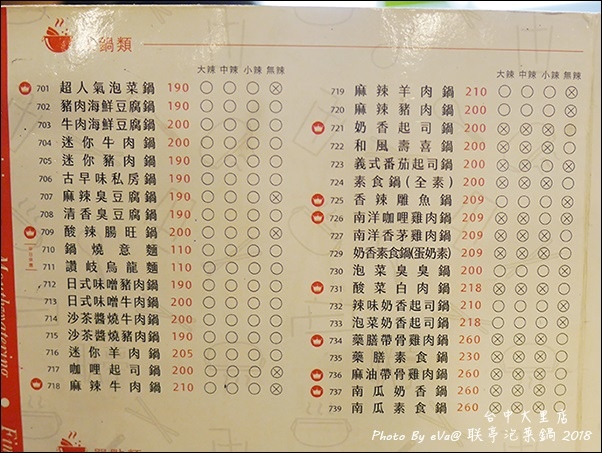 鍋類
大辣 中辣 小辣 無辣
701 超人氣泡菜鍋 190 ○ ○ ○ ⊗
702 豬肉海鮮豆腐鍋 190 ○ ○ ○ ○
703 牛肉海鮮豆腐鍋 200 ○ ○ ○ ○
704 迷你牛肉鍋 200 ○ ○ ○ ○
705 迷你豬肉鍋 190 ○ ○ ○ ○
706 古早味私房鍋 190 ○ ○ ○ ○
707 麻辣臭豆腐鍋 190 ○ ○ ○ ⊗
708 清香臭豆腐鍋 190 ○ ○ ○ ○
709 酸辣腸旺鍋 200 ○ ○ ○ ⊗
710 鍋燒意麵 110 ○ ○ ○ ○
711 讚岐烏龍麵 110 ○ ○ ○ ○
712 日式味噌豬肉鍋 190 ○ ○ ○ ○
713 日式味噌牛肉鍋 200 ○ ○ ○ ○
714 沙茶醬燒牛肉鍋 200 ○ ○ ○ ○
715 沙茶醬燒豬肉鍋 190 ○ ○ ○ ○
716 迷你羊肉鍋 205 ○ ○ ○ ○
717 咖哩起司鍋 200 ○ ○ ○ ⊗
718 麻辣牛肉鍋 210 ○ ○ ○ ⊗
大辣 中辣 小辣 無辣
719 麻辣羊肉鍋 210 ○ ○ ○ ⊗
720 麻辣豬肉鍋 200 ○ ○ ○ ⊗
721 奶香起司鍋 200 ⊗ ⊗ ⊗ ○
722 和風壽喜鍋 200 ⊗ ⊗ ⊗ ○
723 義式番茄起司鍋 200 ⊗ ⊗ ○ ⊗
724 素食鍋(全素) 200 ⊗ ⊗ ⊗ ○
725 香辣雕魚鍋 209 ○ ○ ○ ⊗
726 南洋咖哩雞肉鍋 209 ⊗ ⊗ ○ ⊗
727 南洋香茅雞肉鍋 209 ⊗ ⊗ ⊗ ○
729 奶香素食鍋(蛋奶素) 209 ⊗ ⊗ ⊗ ○
730 泡菜臭臭鍋 200 ○ ○ ○ ⊗
731 酸菜白肉鍋 218 ⊗ ⊗ ⊗ ○
732 辣味奶香起司鍋 210 ○ ○ ○ ⊗
733 泡菜奶香起司鍋 218 ○ ○ ○ ⊗
734 藥膳帶骨雞肉鍋 260 ⊗ ⊗ ⊗ ○
735 藥膳素食鍋 230 ⊗ ⊗ ⊗ ○
736 麻油帶骨雞肉鍋 260 ⊗ ⊗ ⊗ ○
737 南瓜奶香鍋 260 ⊗ ⊗ ⊗ ○
739 南瓜素食鍋 260 ⊗ ⊗ ⊗ ○
台中大里店
Photo By eVa@ 联亭泡菜鍋 2018